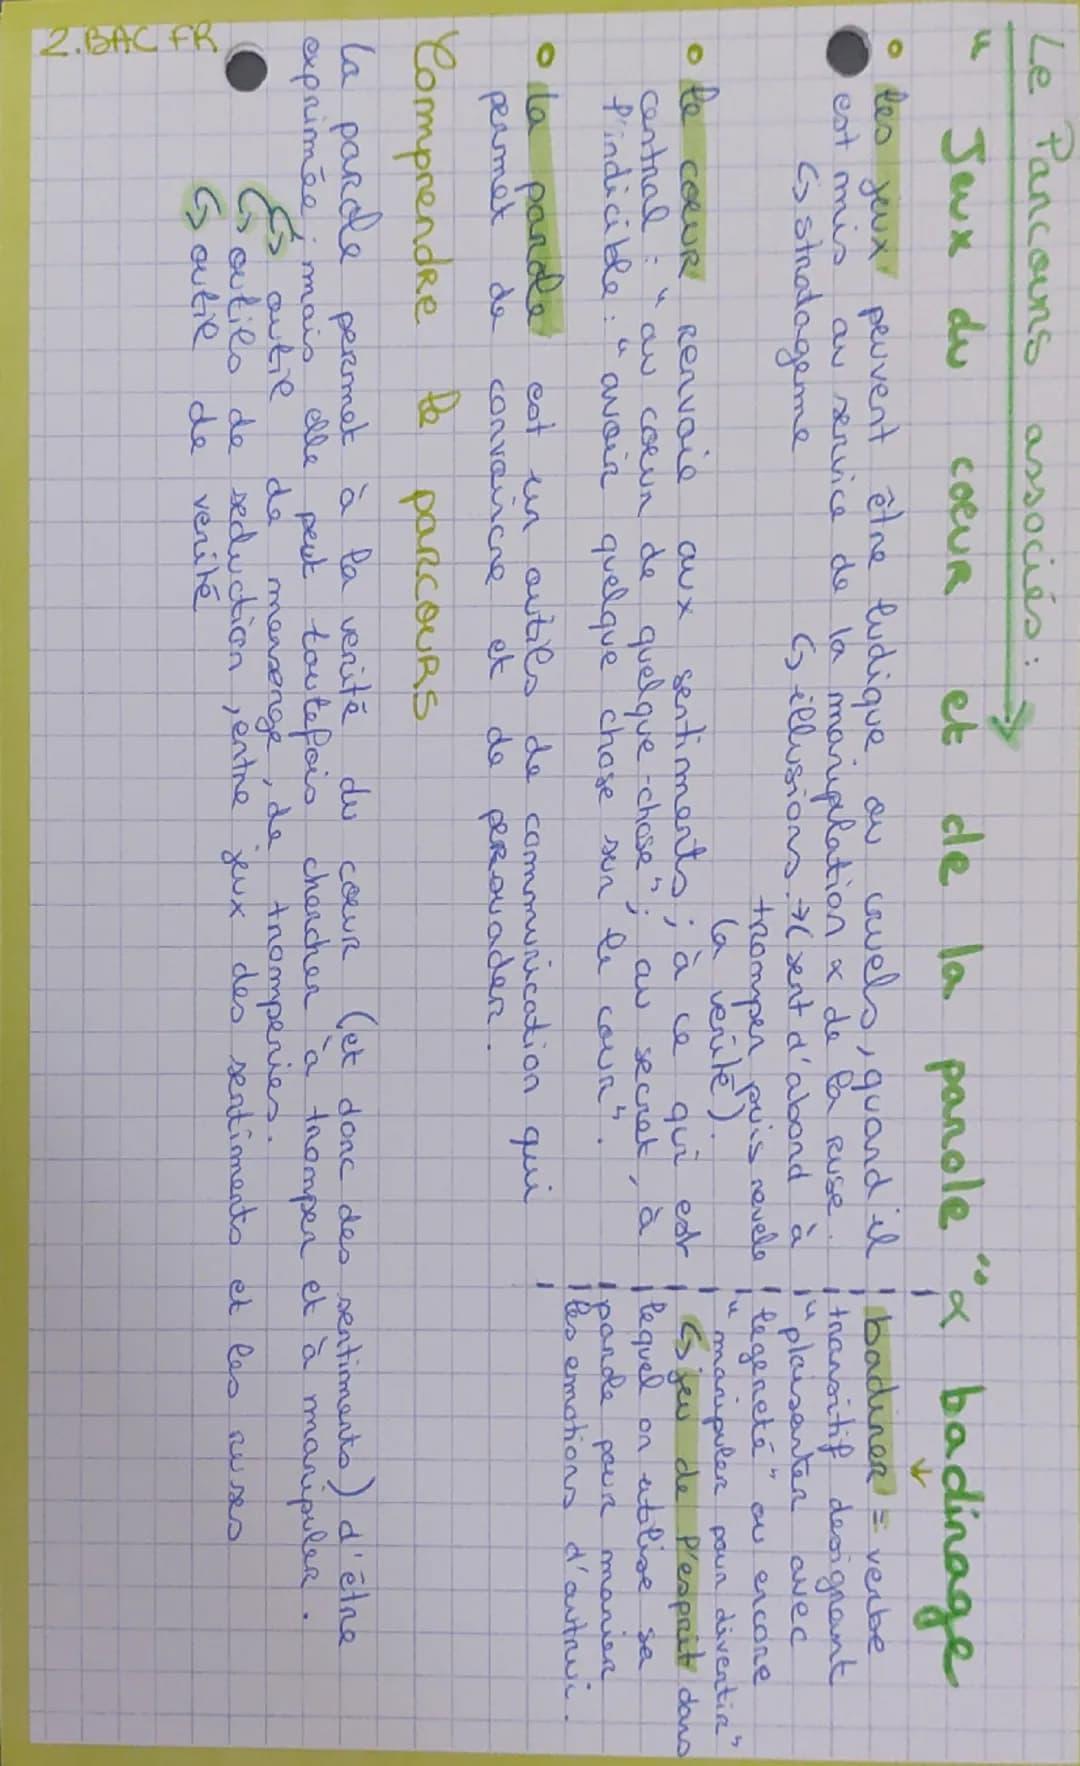 Le Parcours associés :
" Jeux du cœur et de la parole " & badinage
• les jeux peuvent être ludique ou cruels, quand il
est mis au service de la manipulation & de la ruse.
↳ stratageme ↳ illusions → (sert d'abord à
tromper puis revele
la verité).
• le cœur renvoie aux sentiments ; à ce qui est
central : " au cœur de quelque-chose " ; au secret, à
l'indicible : " avoir quelque chose sur le cœur ".
• la parole est un outils de communication qui
permet de convaincre et de persuader.
badiner = verbe
transitif designant
" plaisanter avec
legereté " ou encore
" manipuler pour divertir "
↳ jeu de l'esprit dans
lequel on utilise sa
parole pour manier
les emotions d'autrui.
Comprendre le parcours
la parole permet à la verité du cœur (et donc des sentiments) d'être
exprimée ; mais elle peut toutefois chercher à tromper et à manipuler.
↳ outil de mensonge, de tromperies.
↳ outils de seduction, entre jeux des sentiments et les ruses
↳ outil de verité
2.BAC FR